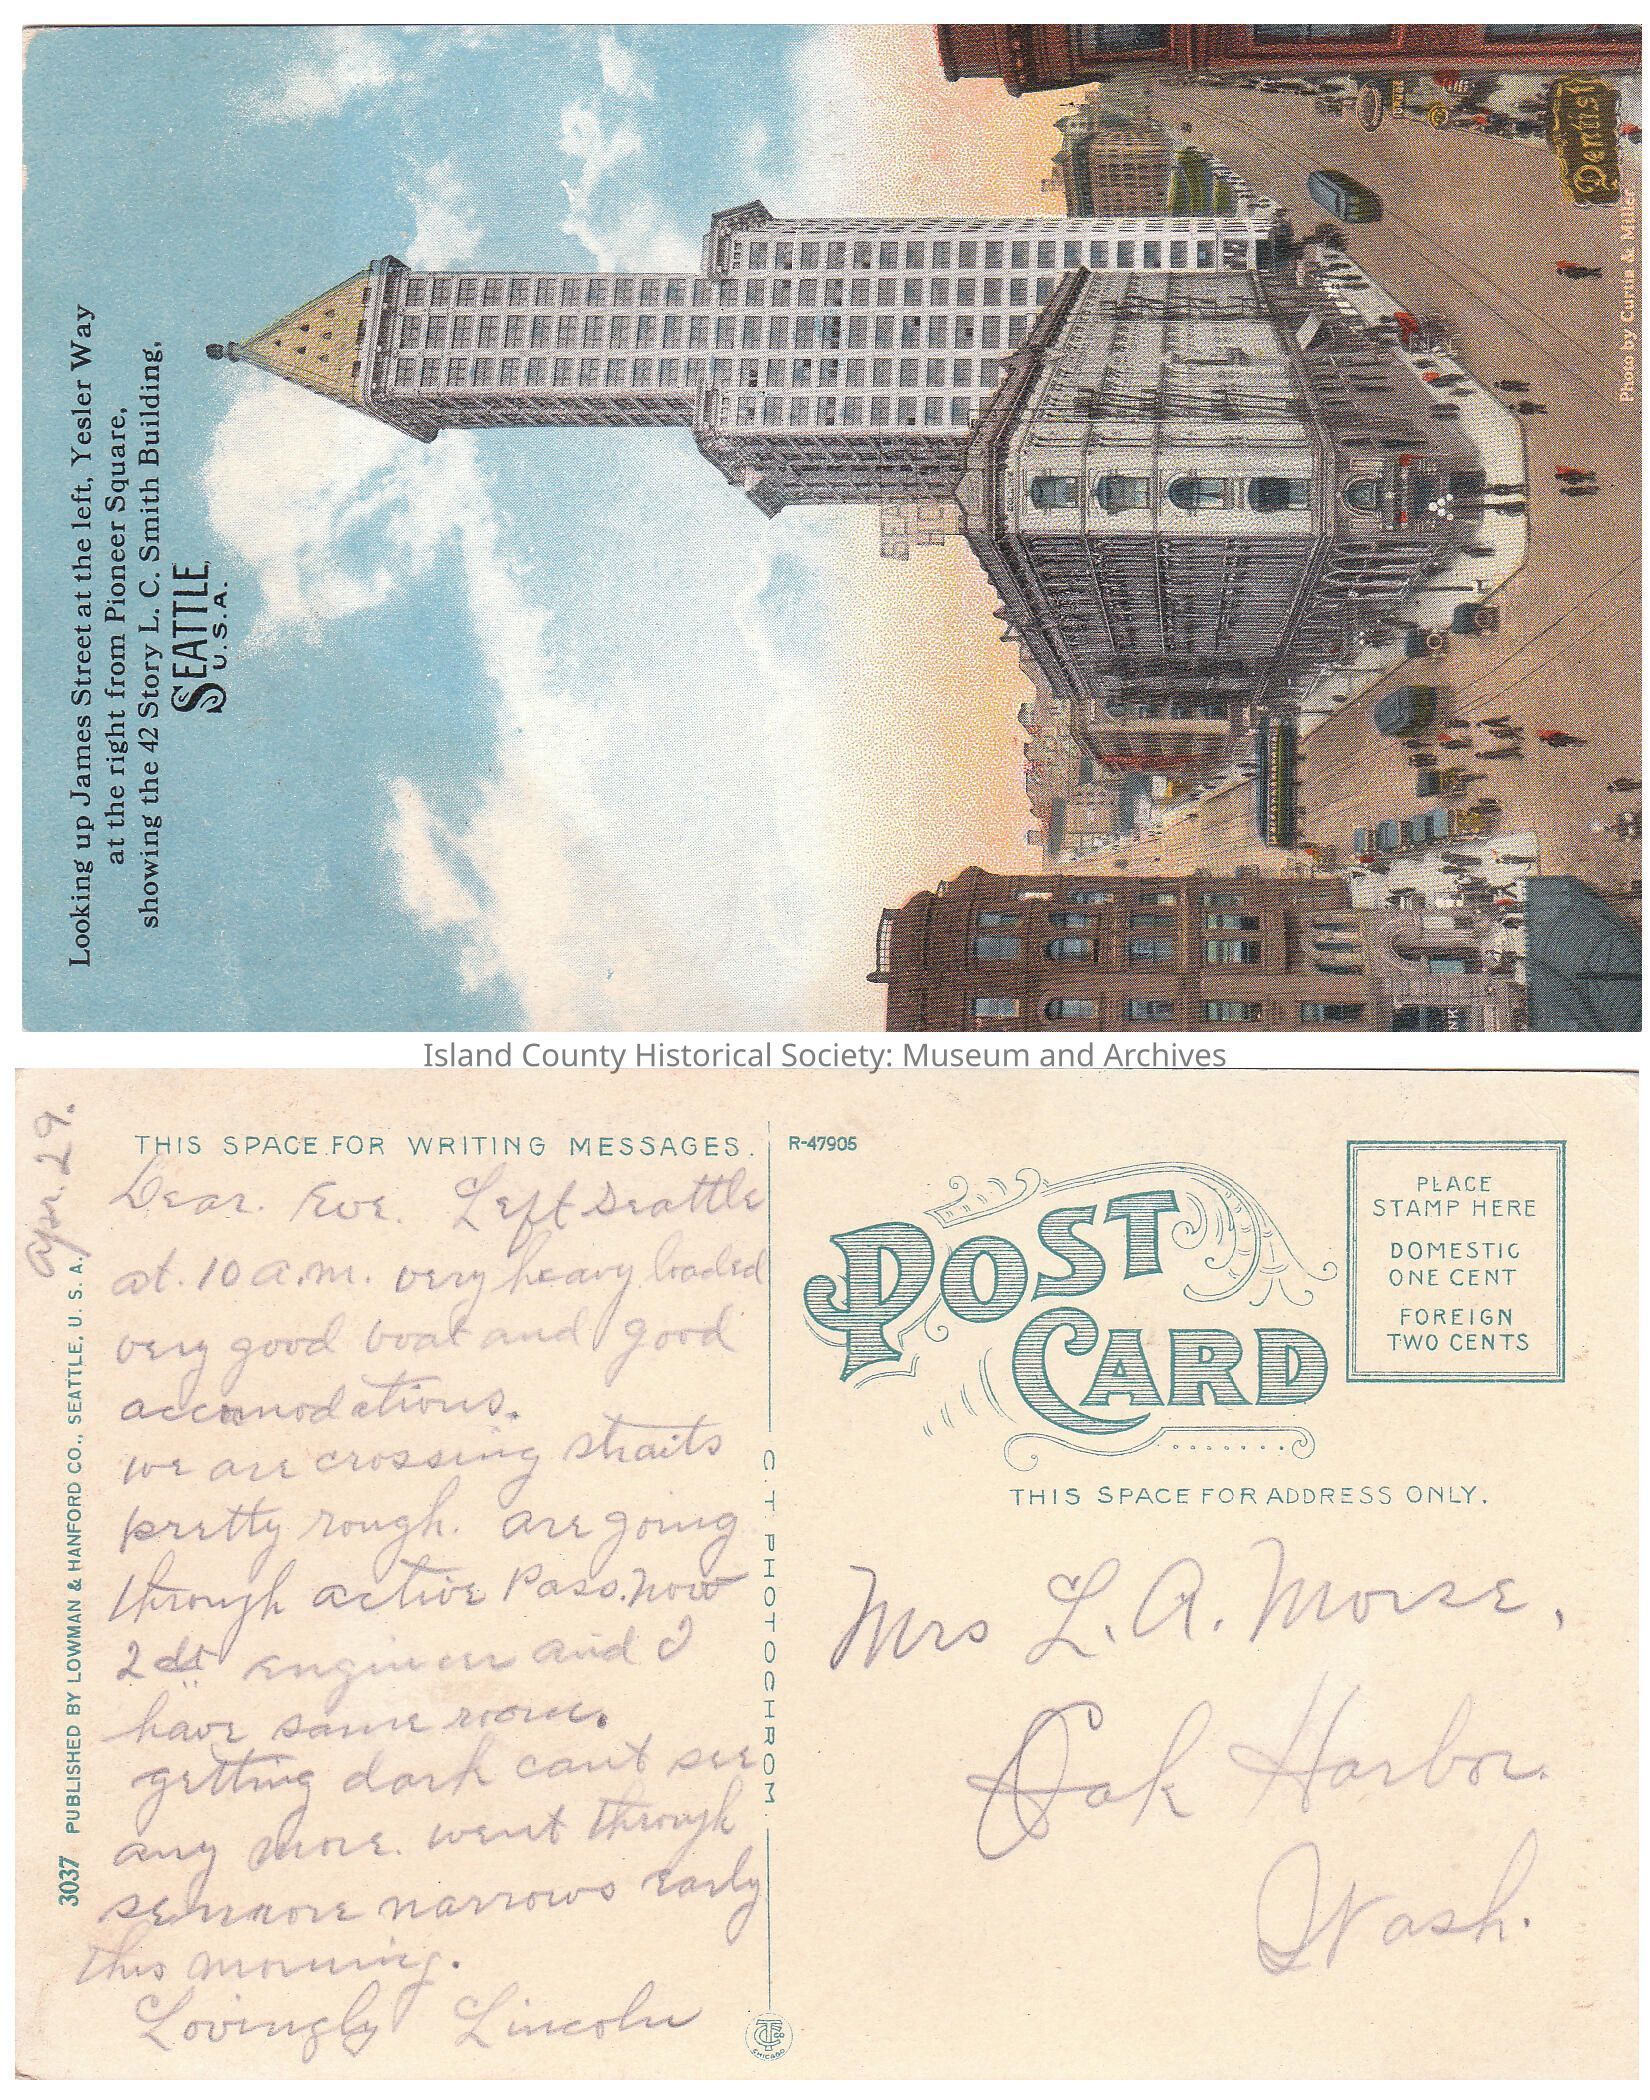 Looking up James Street at the left, Yesler Way
at the right from Pioneer Square,
showing the 42 Story L. C. Smith Building,
SEATTLE,
U.S.A.
Dentist
Photo by Curtis & Miller
Island County Historical Society: Museum and Archives
Apr. 29.
THIS SPACE FOR WRITING MESSAGES.
Dear. Eve. Left Seattle
at. 10 a.m. very heavy loaded
very good boat and good
accomodations.
we are crossing straits
pretty rough. are going
through active Pass. now
2d engineer and I
have same room.
getting dark cant see
any more. went through
semmore narrows early
this morning.
Lovingly Lincoln
3037 PUBLISHED BY LOWMAN & HANFORD CO., SEATTLE, U. S. A.
C. T. PHOTOCHROM.
CHICAGO
R-47905
POST
CARD
PLACE
STAMP HERE
DOMESTIC
ONE CENT
FOREIGN
TWO CENTS
THIS SPACE FOR ADDRESS ONLY.
Mrs L. A. Morse,
Oak Harbor.
Wash.